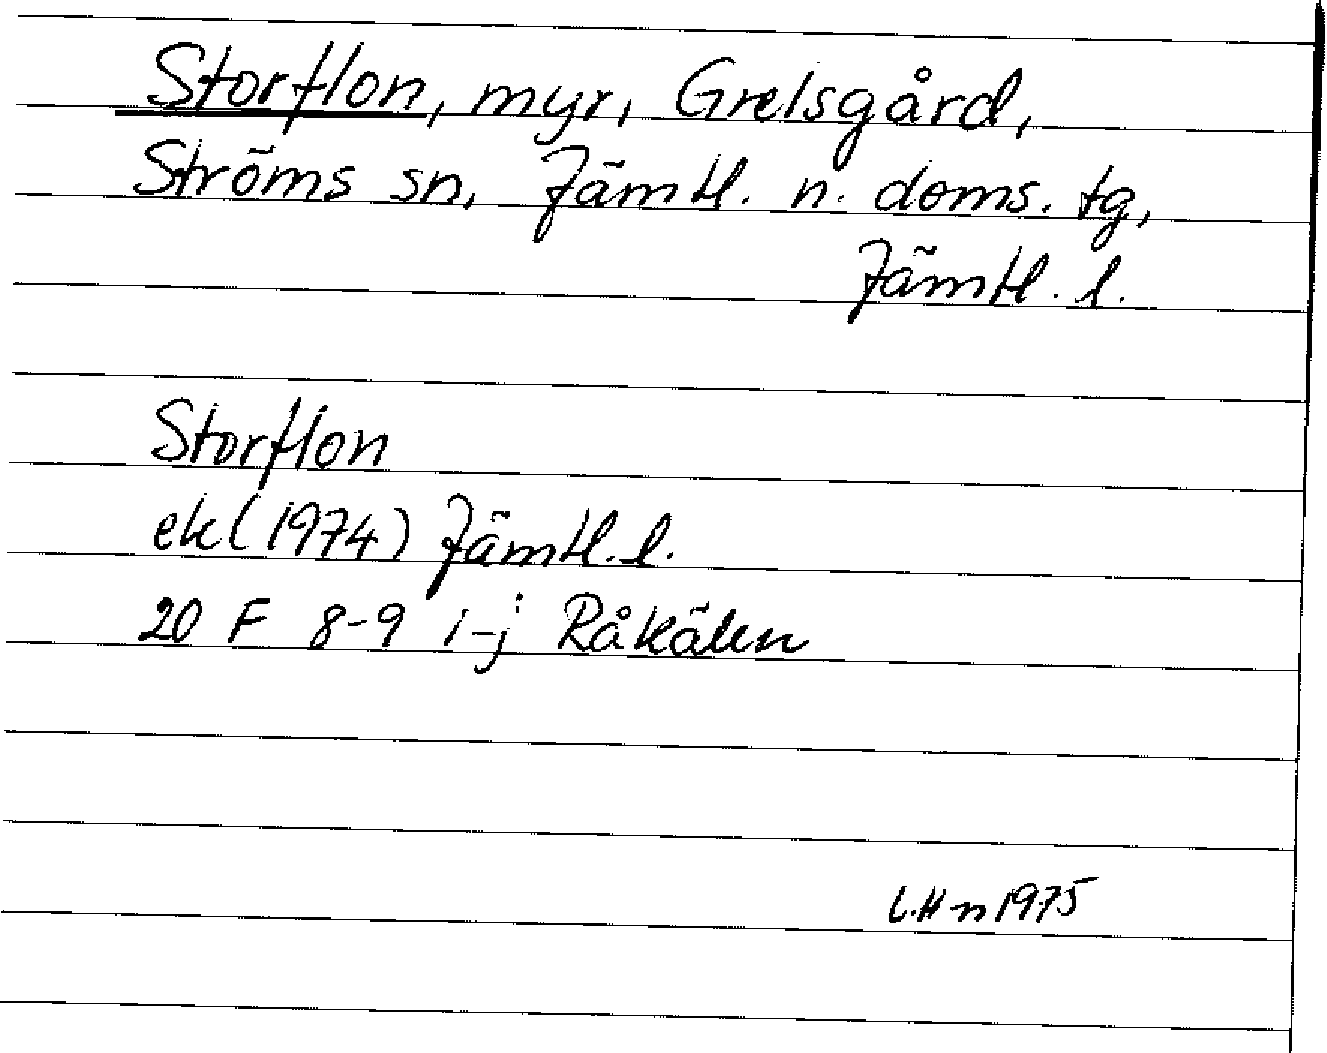 Storflon, myr, Grelsgård,
Ströms sn, Jämtl. n. doms. tg,
Jämtl. l.
Storflon
ek (1974) Jämtl. l.
20 F 8-9 i-j Råkälen
L.Hn 1975